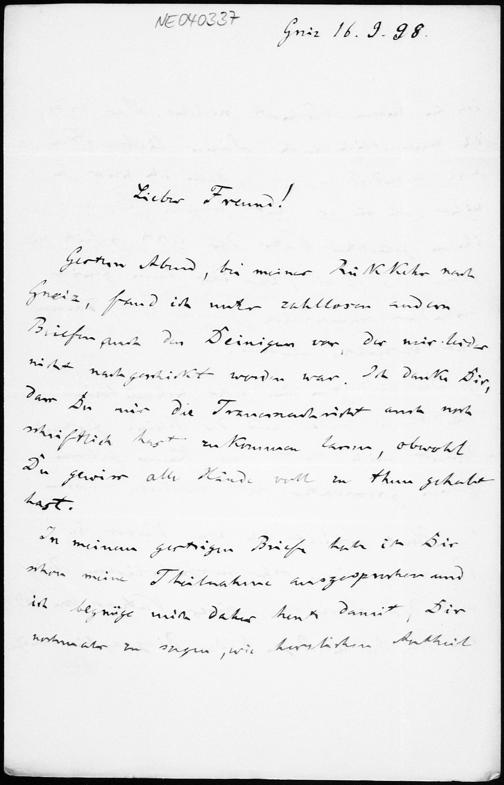 NE040337
Greiz 16. 9. 98.
Lieber Freund!
Gestern Abend, bei meiner Rükkehr nach
Greiz, fand ich unter zahllosen andern
Briefen auch den Deinigen vor, der mir leider
nicht nachgeschickt worden war. Ich danke Dir,
dass Du mir die Trauernachricht auch noch
schriftlich hast zukommen lassen, obwohl
Du gewiss alle Hände voll zu thun gehabt
hast.
In meinem gestrigen Briefe habe ich Dir
schon meine Theilnahme ausgesprochen und
ich begnüge mich daher heute damit, Dir
nochmals zu sagen, wie herzlichen Antheil